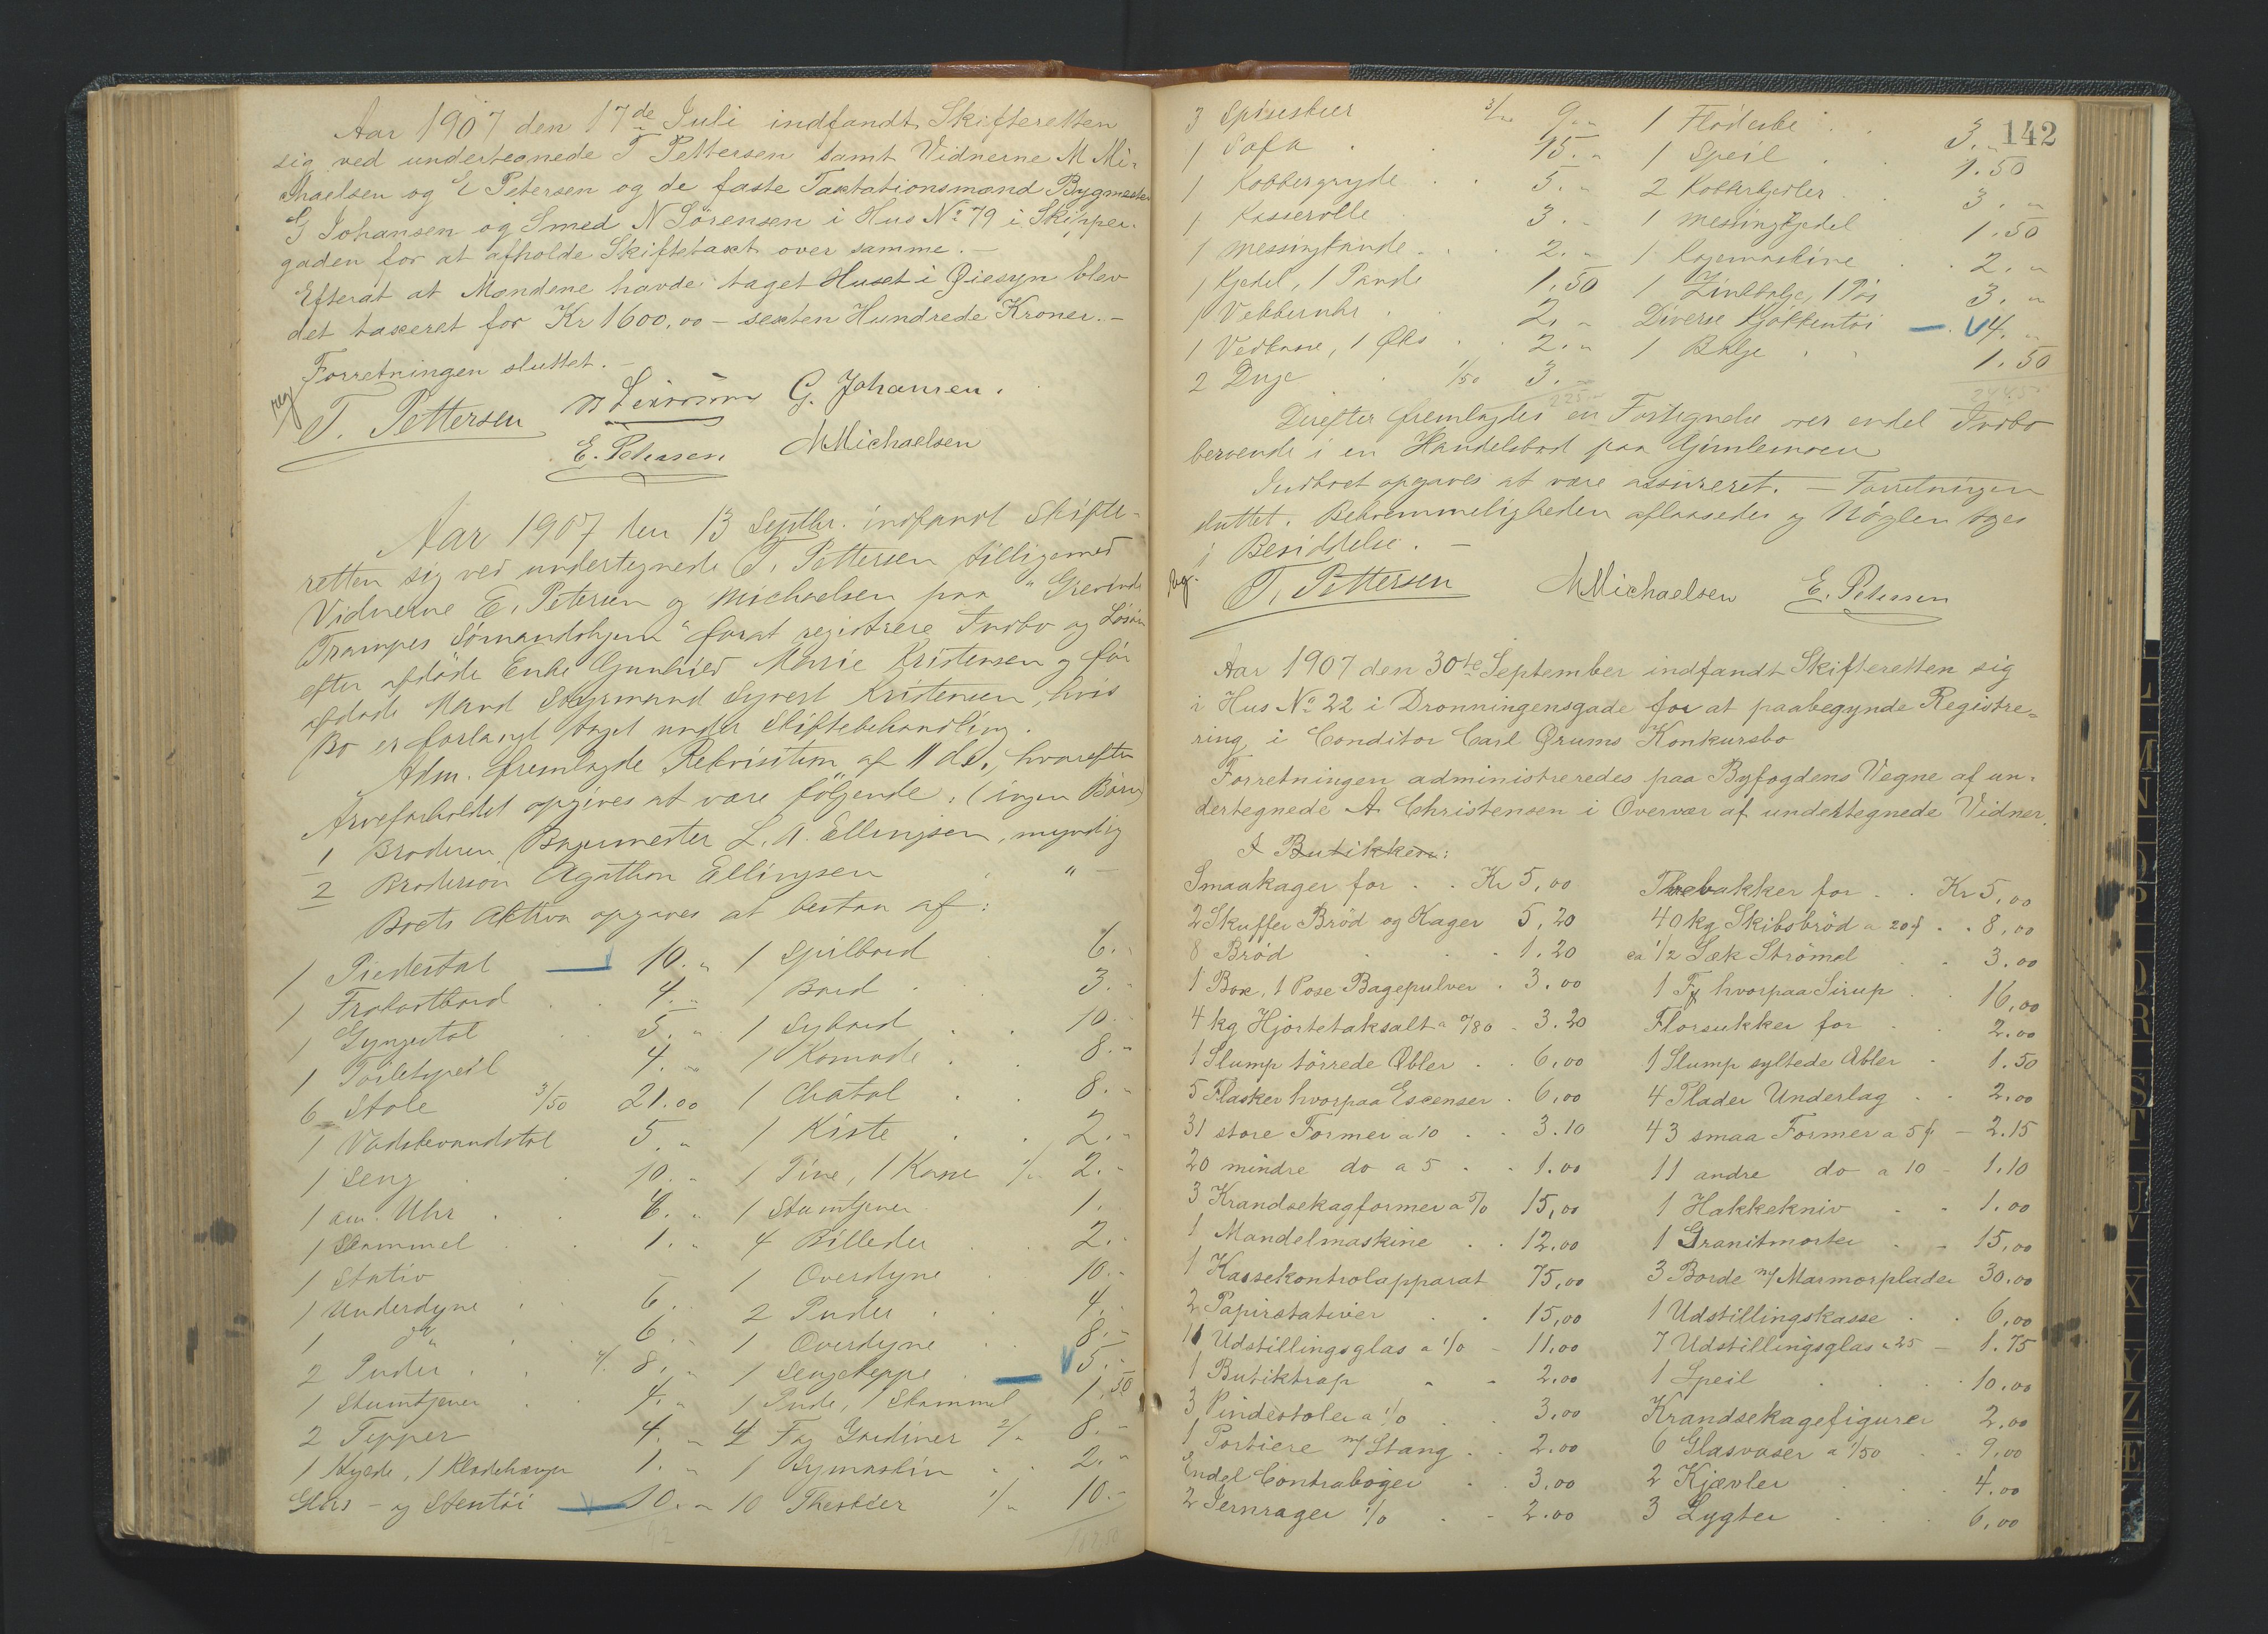 Aar 1907 den 17de Juli indfandt Skifteretten
sig ved undertegnede T Pettersen samt Vidnerne M Mi-
chaelsen og E Petersen og de faste Taxtationsmænd Bygmester
G Johansen og Smed N Sörensen i Hus No 79 i Skipper-
gaden for at afholde Skiftetaxt over samme. -
Efterat at Mændene havde taget Huset i Øiesyn blev
det taxeret for Kr 1600,00 - sexten Hundrede Kroner. -
Forretningen sluttet. -
reg
T. Pettersen G. Johansen.
E. Petersen MMichaelsen
Aar 1907 den 13 Septbr. indfandt Skifte-
retten sig ved undertegnede T. Pettersen tilligemed
Vidnerne E. Petersen og Michaelsen paa "Grevinde
Trampes Sömandshjem" forat registrere Indbo og Lösöre
efter afdöde Enke Gunhild Marie Kristensen og før
afdöde Mand Styrmand Syvert Kristensen, hvis
Bo er forlangt taget under Skiftebehandling.
Adm. fremlagde Rekvisition af 11 ds., hvorefter
Arveforholdet opgives at være följende: (ingen Börn)
1 Broderen, Bagermester L. A. Ellingsen, myndig
2 Brodersön Agathon Ellingsen " -
Boets Aktiva opgaves at bestaa af:
1 Piedestal 10. " 1 Spilbord 6. "
1 Frokostbord 4. " 1 Bord 3. "
1 Gyngestol 5. " 1 Sybord 10. "
1 Toiletspeil 4. " 1 Komode 8. "
6 Stole 3/50 21.00 1 Chatol 8. "
1 Vadskevandstol 5. " 1 Kiste 2. "
1 Seng 10. " 1 Tine, 1 Kasse 1/" 2. "
1 am. Uhr 6. " 1 Stumtjener 1.
1 Skammel 1. " 4 Billeder 2. "
1 Stativ - 1 Overdyne 10. "
1 Underdyne 6. 2 Puder 4. "
1 do 6. " 1 Overdyne 8. "
2 Puder 4/. 8. " 1 Sengeteppe 5. "
1 Stumtjener 4. " 1 Pude, 1 Skammel 1.50
2 Tepper 4. " 4 Fag Gardiner 2/" 8. "
1 Hylde, 1 Klædehænger 1. " 1 Symaskin 2. "
Glas - og Stentöi 10. " 10 Theskeer 1/" 10. "
142
3 Spiseskeer 3/" 9. " 1 Flödeske 3. "
1 Sofa 15. " 1 Speil 1.50
1 Kobbergryde 5. " 2 Kobberkjedler 3. "
1 Kasserolle 3. " 1 Messingkjedel 1.50
1 Messingkande 2. " 1 Kogemaskine 2. "
1 Kjedel, 1 Pande 1.50 1 Zinkbalje, 3. "
1 Vekkeruhr 2. " Diverse Kjökkentöi 4. "
1 Vedkasse, 1 Øks 2. " 1 Balje 1.50
2 Duge 1/50 3. "
Derefter fremlagdes en Fortegnelse over endel Indbo
beroende i en Handelsbod paa Gimlemoen
Indboet opgaves at være assureret. - Forretningen
sluttet. Bekvemmeligheden aflaasedes og Nöglen toges
i Besiddelse. -
reg.
T. Pettersen MMichaelsen E. Petersen
Aar 1907 den 30te September indfandt Skifteretten sig
i Hus No 22 i Dronningensgade for at paabegynde Registre-
ring i Conditor Carl Ørums Konkursbo
Forretningen administreredes paa Byfogdens Vegne af un-
dertegnede A. Christensen i Overvær af undertegnede Vidner.
I Butikken:
Smaakager for Kr 5,00 Thebakker for Kr 5,00
2 Skuffer Bröd og Kager 5,20 40 kg Skibsbröd a 20 8,00
8 Bröd 1.20 ca 1/2 Sæk Strömel 3.00
1 Box, 1 Pose Bagepulver 3.00 1 Fj hvorpaa Sirup 16,00
4 kg Hjortetaksalt a 0/80 3.20 Florsukker for 2.00
1 Slump törrede Æbler 6,00 1 Slump syltede Æbler 1.50
5 Flasker hvorpaa Escenser 6,00 4 Plader Underlag 2,00
31 store Former a 10 3.10 43 smaa Former a 5 2.15
20 mindre do a 5 1.00 11 andre do a 10 1,10
3 Krandsekagformer a 5/0 15,00 1 Hakkekniv 1.00
1 Mandelmaskine 12.00 1 Granitmorter 15,00
1 Kassekontrolapparat 75,00 3 Borde m/ Marmorplader 30.00
2 Papirstativer 15,00 1 Udstillingskasse 6,00
11 Udstillingsglas a 1/0 11,00 7 Udstillingsglas a 25 1.75
1 Butiktrap 2.00 1 Speil 10.00
3 Pindestoler a 1/0 3,00 Krandsekagefigurer 2,00
1 Portiere m/ Stang 2.00 6 Glasvaser a 1/50 9,00
Endel Contraböger 3,00 2 Kjævler 4.00
2 Jernrager 1/0 2.00 3 Lygter 6,00